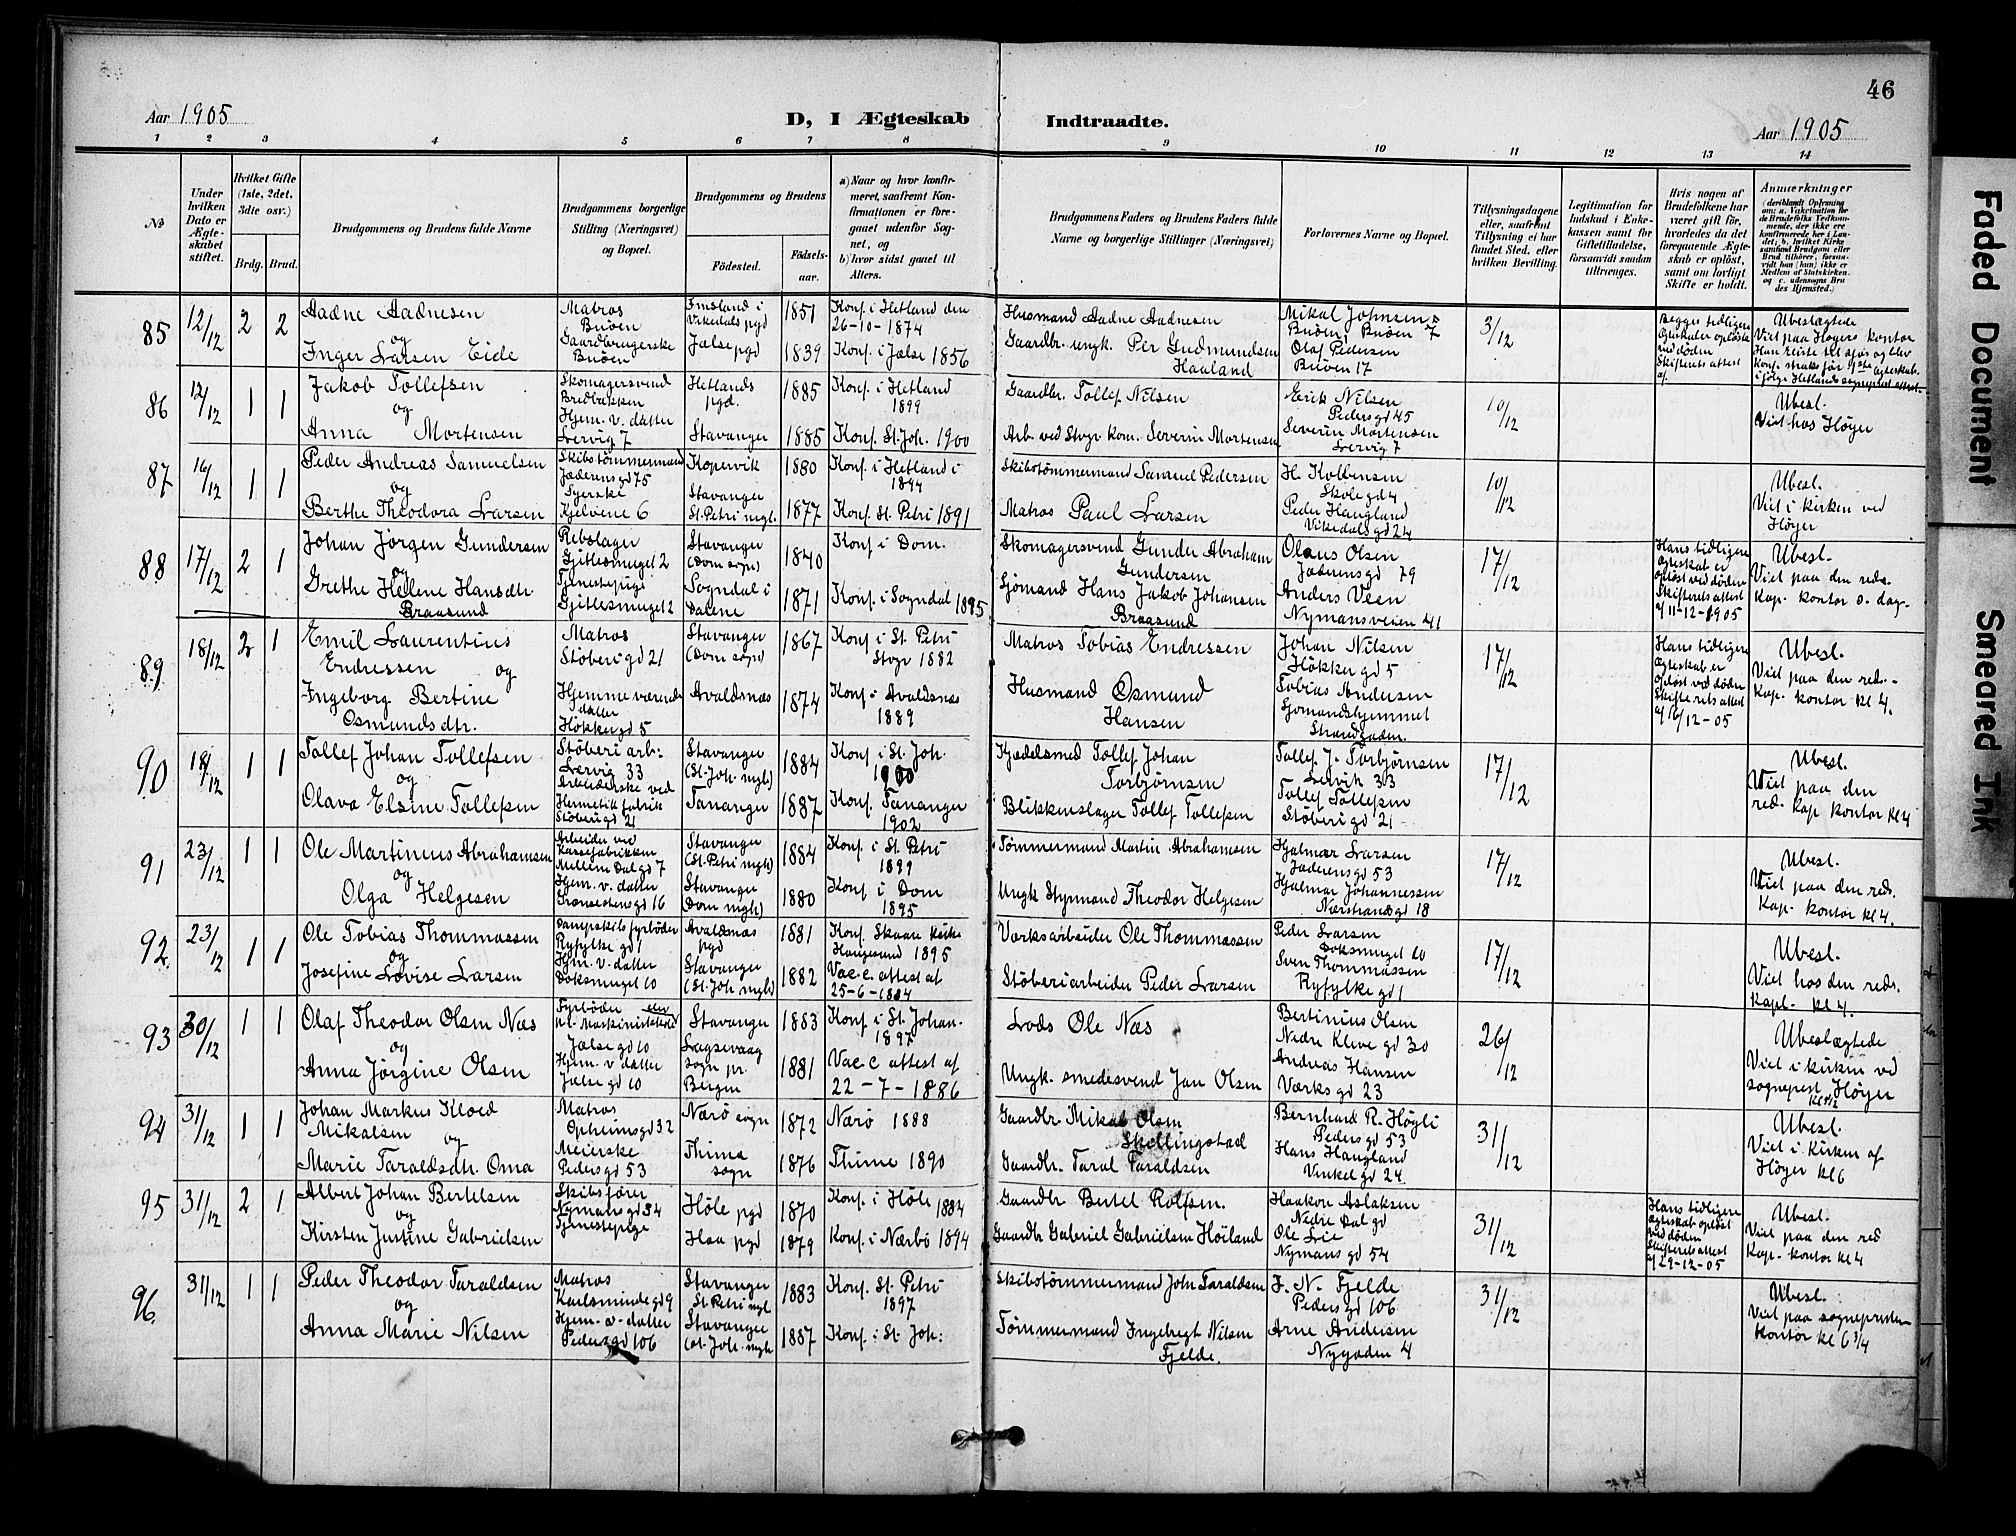 46
Aar 1905
D, I Ægteskab Indtraadte.
Aar 1905
1 2 3 4 5 6 7 8 9 10 11 12 13 14
No
Under hvilken Dato er Ægteskabet stiftet.
Hvilket Gifte (1ste, 2det, 3die osv.)
Brdg. Brud.
Brudgommens og Brudens fulde Navne
Brudgommens borgerlige Stilling (Næringsvei) og Bopæl.
Brudgommens og Brudens
Fødested. Fødselsaar.
a) Naar og hvor konfirmeret, saafremt Konfirmationen er foregaaet udenfor Sognet, og
b) hvor sidst gaaet til Alters.
Brudgommens Faders og Brudens Faders fulde Navne og borgerlige Stillinger (Næringsvei)
Forlovernes Navne og Bopæl.
Tillysningsdagene eller, saafremt Tillysning ei har fundet Sted, efter hvilken Bevilling.
Legitimation for Indskud i Enkekassen samt for Giftetilladelse, forsaavidt saadan tiltrænges.
Hvis nogen af Brudefolkene har været gift før, hvorledes da det foregaaende Ægteskab er opløst, samt om lovligt Skifte er holdt.
Anmærkninger
85 12/12 2 2
Aadne Aadnesen
og
Inger Larsen Eide
Matros
Buøen
Gaardbrugerske
Buøen
Imsland i
Vikedals pgd
Jælse pgd
1851
1839
Konf. i Hetland den
26-10-1874
Konf. i Jælse 1856
Husmand Aadne Aadnesen
Gaardbr. ungk. Per Gudmundsen
Haaland
Mikal Johnsen
Buøen 7
Olaf Pedersen
Buøen 17
3/12
Begges tidligere
Ægteskaber opløste
ved døden
Skifterets attest
af.
Ubeslægtede
Viet paa Høyers kontor
Han reiste til sjøs og blev
Konf. straks før 1ste ægteskab
86 12/12 1 1
Jakob Tollefsen
og
Anna Mortensen
Skomagersvend
Bredbækken
Hjem. v. datter
Lervig 7
Hetlands
pgd.
Stavanger
1885
1885
Konf. i Hetland
1899
Konf. St. Joh. 1900
Gaardbr. Tollef Nilsen
Arb. ved Stvgr kom. Severin Mortensen
Erik Nilsen
Pedersgd 45
Severin Mortensen
Lervig 7
10/12
Ubesl.
Viet hos Höyer
87 16/12 1 1
Peder Andreas Samuelsen
og
Berthe Theodora Larsen
Skibstømmermand
Jæderensgd 75
Syerske
Kjelvene 6
Kopervik
Stavanger
St. Petri mgh.
1880
1877
Konf. i Hetland i
1894
Konf. St. Petri 1891
Skibstømmermand Samuel Pedersen
Matros Paul Larsen
H. Kolbensen
Skole gd 4
Peder Haugland
Vikedals gd 24
10/12
Ubesl.
Viet i kirken ved
Höyer
88 17/12 2 1
Johan Jørgen Gundersen
og
Grethe Helene Hansdtr
Braasund
Rebslager
Gjitlesmuget 2
Tjenestepige
Gjitlesmuget 2
Stavanger
(Dom sogn)
Sogndal i
Dalene
1840
1871
Konf. i Dom.
Konf. i Sogndal 1895
Skomagersvend Gunder Abraham
Gundersen
Sjømand Hans Jakob Johansen
Braasund
Olaus Olsen
Jæderensgd 79
Anders Veen
Nymansveien 41
17/12
Hans tidligere
Ægteskab er
opløst ved døden
Skifterets attest
af 11-12-1905
Ubesl.
Viet paa den reds.
Kap. kontor o. dag.
89 18/12 2 1
Emil Laurentius
Endressen og
Ingeborg Bertine
Osmundsdtr.
Matros
Støberigd 21
Hjemmeværende
datter
Høkkergd 5
Stavanger
(Dom sogn)
Avaldsnæs
1867
1874
Konf. i St. Petri
Stvgr 1882
Konf. i Avaldsnæs
1889
Matros Tobias Endressen
Husmand Osmund
Hansen
Johan Nilsen
Høkker gd 5
Tobias Andersen
Sjomandshjemmet
Strandgaden.
17/12
Hans tidligere
Ægteskab er
opløst ved døden
Skifterets attest
af 16/12-05
Ubesl.
Viet paa den reds.
Kap. kontor kl 4.
90 18/12 1 1
Tollef Johan Tollefsen
og
Olava Elsine Tollefsen
Støberi arb:
Lervig 33
Arbeiderske ved
Hermetikfabrik
Støberigd 21
Stavanger
(St. Joh. mgh)
Tananger
1884
1887
Konf. i St. Joh.
1900
Konf. Tananger
1902
Kjedelsmed Tollef Johan
Torbjørnsen
Blikkenslager Tollef Tollefsen
Tollef J. Torbjørnsen
Lervik 33
Tollef Tollefsen
Støberigd 21
17/12
Ubesl.
Viet paa den
red. Kap kontor kl 4
91 23/12 1 1
Ole Martinius Abrahamsen
og
Olga Helgesen
Arbeider ved
Kassefabrikken
Mellem Dalgd 7
Hjem. v. datter
gd 16
Stavanger
(St. Petri mgh)
Stavanger
(Dom mgh)
1884
1880
Konf. i St. Petri
1899
Konf. i Dom
1895
Tømmermand Martin Abrahamsen
Ungk Styrmand Theodor Helgesen
Hjalmar Larsen
Jæderensgd 53
Hjalmar Johannessen
Nærstrandsgd 18
17/12
Ubesl.
Viet paa den reds.
Kap. kontor kl 4.
92. 23/12 1 1
Ole Tobias Thommassen
og
Josefine Lovise Larsen
Dampskibsfyrbøder
Ryfylke gd 1
Hjm. v. datter
Doksmuget 10
Avaldsnæs
pgd
Stavanger
(St. Joh mgh)
1881
1882
Konf. Skaare kirke
Haugesund 1895
Vac. c. attest af
25-6-1884
Værksarbeider Ole Thommassen
Støberiarbeider Peder Larsen
Peder Larsen
Doksmuget 10
Sven Thommassen
Ryfylke gd 1
17/12
Ubesl.
Viet hos den reds.
Kapl. kl 4.
93 30/12 1 1
Olaf Theodor Olsen Næs
og
Anna Jørgine Olsen
Fyrbøder
Jælse gd 10
Hjem. v datter
Jælse gd 10
Stavanger
Laxevaag
sogn pr.
Bergen
1883
1881
Konf. i St. Johan.
1897
Vac. c attest af
22-7-1886
Lods Ole Næs
Ungk. smedesvend Jan Olsen
Bertinius Olsen
Nedre Kleve gd 30
Andreas Hansen
Værks gd 23
26/12
Ubeslægtede
Viet i kirken ved
sognepræst Höyer
94 31/12 1 1
Johan Markus Kloed
Mikalsen og
Marie Taraldsdtr. Oma
Matros
Opheimsgd 32
Meierske
Pedersgd 53
Nærø sogn
Thime
sogn
1872
1876
Nærø 1888
Thime 1890
Gaardbr. Mikal Olsen
Skellingstad
Gaardbr. Taral Taraldsen
Bernhard R. Høgli
Pedersgd 53
Hans Haugland
Vinkel gd 24
31/12
Ubesl.
Viet i Kirken af
Höyer kl 6
95 31/12 2 1
Albert Johan Bertelsen
og
Kirsten Justine Gabrielsen
Skibsfører
Nymansgd 54
Tjenestepige
Høle pgd
Haa pgd
1870
1879
Konf. i Høle 1884
Konf. i Nærbø 1894
Gaardbr Bertel Rolfsen.
Gaardbr Gabriel Gabrielsen Høiland
Haakon Aslaksen
Nedre Dal gd
Ole Lie
Nymans gd 54
31/12
Hans tidligere
Ægteskab opløst
ved døden
Skifterets attest
af 29-12-05
Ubesl.
Viet paa den red
Kap. kontor kl 4
96. 31/12 1 1
Peder Theodor Taraldsen
og
Anna Marie Nilsen
Matros
Karlsmindegd 9
Hjem. v. datter
Pedersgd 106
Stavanger
St. Petri mgh
Stavanger
(St. Joh. mgh
1883
1887
Konf. St. Petri
1897
Konf. i St. Joh:
Skibstømmermand John Taraldsen
Tømmermand Ingebregt Nilsen
Fjelde.
J. N. Fjelde
Pedersgd 106
Arne Andersen
Nygaden 4
31/12
Ubesl.
Viet paa sogneprestens
Kontor kl 6 3/4
Faded Document
Smeared Ink